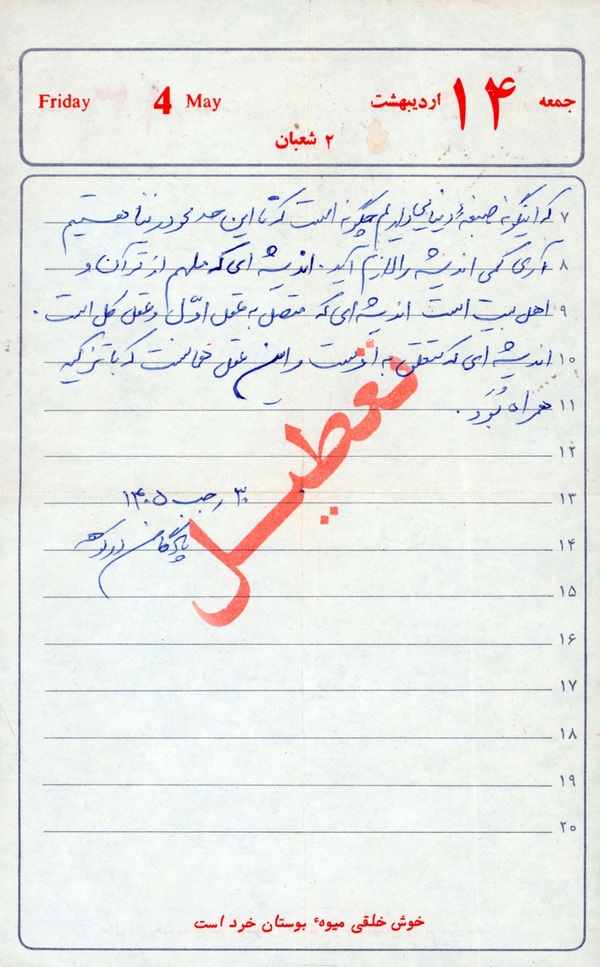 جمعه ۱۴ اردیبهشت 4 May Friday
۲ شعبان
۷ که اینگونه صبغهٔ دنیایی داریم چگونه است که تا این حد محو در دنیا هستیم
۸ آری کمی اندیشه را لازم آید. اندیشه ای که ملهم از قرآن و
۹ اهل بیت است اندیشه ای که متصل به عقل اوّل و عقل کل است.
۱۰ اندیشه ای که متعلق به آخرتست و این عقل همانست که با تزکیه
۱۱ همراه بُوَد.
۱۲
۱۳ ۳۰ رجب ۱۴۰۵
۱۴ پادگان دوکوهه
۱۵
۱۶
۱۷
۱۸
۱۹
۲۰
تعطیل
خوش خلقی میوهٔ بوستان خرد است